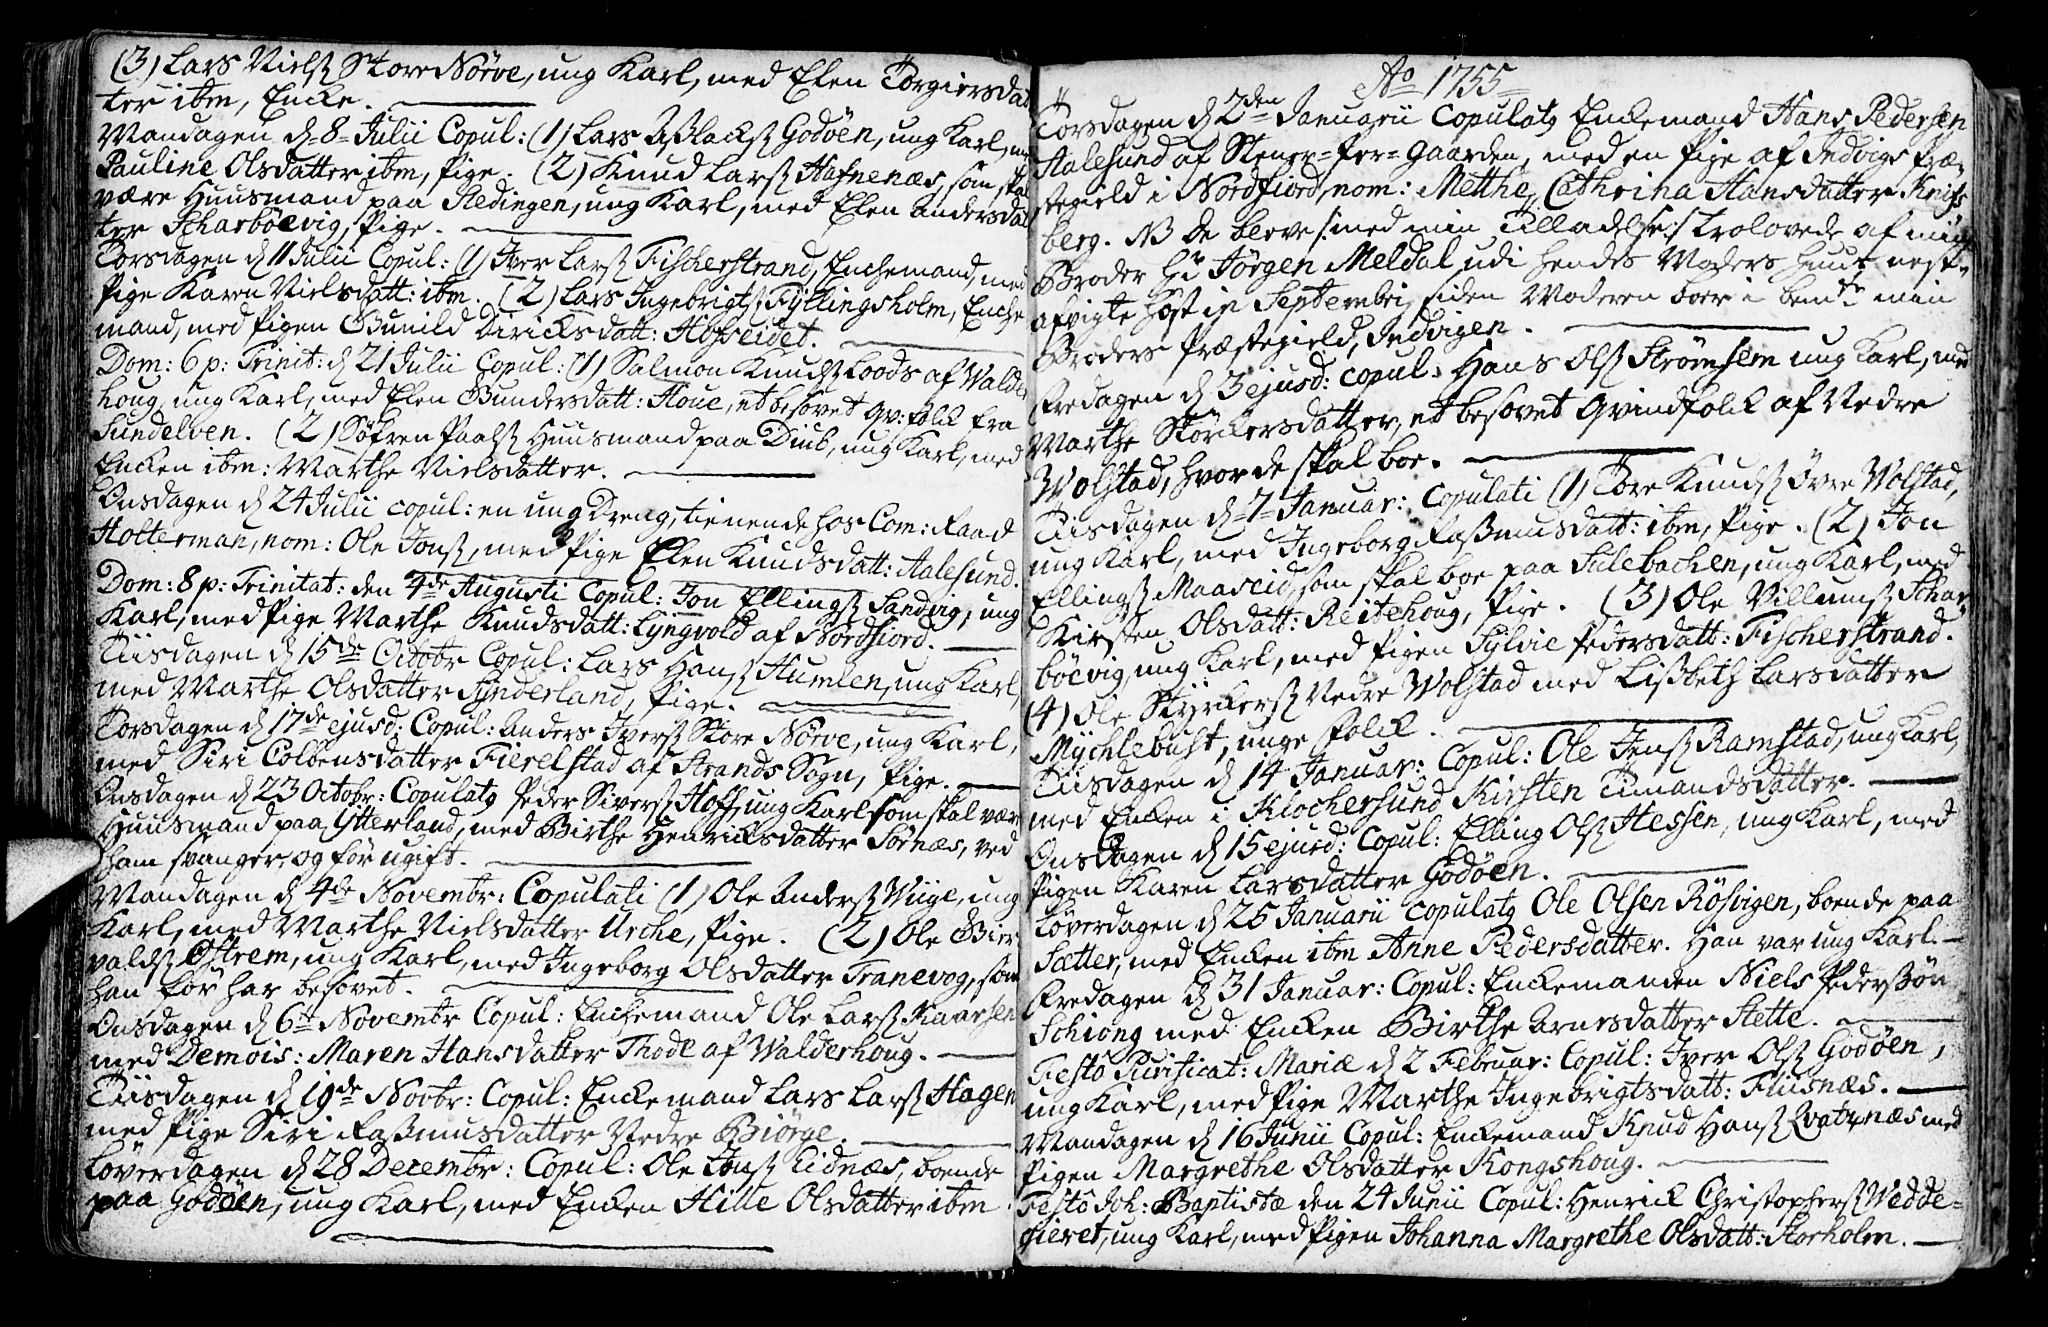 (3) Lars Nielsß Store Nörve, ung Karl, med Elen Torgiersdat
ter ibm, Encke.
Mandagen d. 8 Julii Copul: (1) Lars Aslacksß Godöen, ung Karl, m
Pauline Olsdatter ibm, Pige. (2) Knud Larsß Hafnenæs, som skal
være Huusmand paa Redingen, ung Karl, med Elen Andersdat
ter Scharböevig, Pige.
Torsdagen d. 11 Julii Copul: (1) Iver Larsß Fischerstrand, Enchemand, med
Pige Karen Nielsdatt: ibm. (2) Lars Ingebrigtsß Fyllingsholm, Enche
mand, med Pigen Gunild Diricksdatt: Hofseidet.
Dom: 6 p: Trinit: d. 21 Julii Copul: (1) Salmon Knudsß Loods af Walder
houg, ung Karl, med Elen Gundersdatt: Houe, et besovet Qv: folk fra
Sundelven. (2) Söfren Paalsß Huusmand paa Diub, ung Karl, med
Encken ibm: Marthe Nielsdatter.
Onsdagen d. 24 Julii copul: en ung Dreng, tienende hos Com: Raad
Holterman, nom: Ole Jonsß, med Pige Elen Knudsdatt: Aalesund.
Dom: 8 p: Trinitat: den 4de Augusti Copul: Jon Ellingsß Sandvig, ung
Karl, med Pige Marthe Knudsdatt: Lyngvold af Nordfiord.
Tiisdagen d. 15de Octobr Copul: Lars Hansß Humlen, ung Karl,
med Marthe Olsdatter Synderland, Pige.
Torsdagen d. 17de ejusd: Copul: Anders Iversß Store Nörve, ung Karl,
med Siri Colbensdatter Fierelstad af Strands Sogn, Pige.
Onsdagen d. 23 Octobr: Copulatq Peder Siversß Hoff, ung Karl som skal vær
Huusmand paa Ytterland, med Birthe Henricksdatter Sörnæs, ved
ham svanger, og för ugift.
Mandagen d. 4de Novembr: Copulati (1) Ole Andersß Wiige, ung
Karl, med Marthe Nielsdatter Urche, Pige. (2) Ole Bier
valdsß Östrem, ung Karl, med Ingeborg Olsdatter Tranevog, som
han för har besovet.
Onsdagen d. 6te Novembr Copul: Enckemand Ole Larsß Kaarsen
med Demois: Maren Hansdatter Thode af Walderhoug.
Tiisdagen d. 19de Novbr: Copul: Enckemand Lars Larsß Hagen
med Pige Siri Rasmusdatter Nedre Biörge.
Löverdagen d. 28 Decembr: Copul: Ole Jonsß Eidnæs, boende
paa Godöen, ung Karl, med Encken Hille Olsdatter ibm.
Ao 1755
Torsdagen d. 2den Januarii Copulatq Enckemand Hans Pedersen
Aalesund af Stener-Per-Gaarden, med en Pige af Indvigs Præ-
stegield i Nordfiord, nom: Metthe Cathrina Hansdatter
berg. NB de bleve /: med min Tilladelse :/ trolovede af min
Broder Hr Jörgen Meldal udi hendes Moders Huus nest-
afvigte Höst in Septembri, siden Moderen boer i bemte min
Broders Præstegield, Indvigen.
Fredagen d. 3 ejusd: copul: Hans Olsß Strömsem ung Karl, med
Marthe Störkersdatter, et besovet Qvindfolk af Nedre
Wolstad, hvor de skal boe.
Tiisdagen d. 7 Januar: Copulati (1) Tore Knudsß Övre Wolstad,
ung Karl, med Ingeborg Rasmusdatt: ibm, Pige. (2) Jon
Ellingsß Maaseid, som skal boe paa Sulebachen, ung Karl, med
Kirsten Olsdatt: Reitehoug, Pige. (3) Ole Villumsß Schar-
böevig, ung Karl, med Pigen Sylvie Pedersdatt: Fischerstrand.
(4) Ole Styrkersß Nedre Wolstad med Lisbeth Larsdatter
Mychlebust, unge Folk.
Tiisdagen d. 14 Januar: Copul: Ole Jensß Ramstad, ung Karl,
med Encken i Kiochersund Kirsten Timandsdatter.
Onsdagen d. 15 ejusd: Copul: Elling Olsß Hessen, ung Karl, med
Pigen Karen Larsdatter Godöen.
Löverdagen d. 25 Januarii copulatq Ole Olsen Rösvigen, boende paa
Sætter, med Encken ibm Anne Pedersdatter. Han var ung Karl.
Fredagen d. 31 Januar: Copul: Enckemanden Niels Pedersön
Schiong med Encken Birthe Arnesdatter Slette.
Festo Purificat: Mariæ d. 2 Februar: Copul: Iver Olsß Godöen,
ung Karl, med Pige Marthe Ingebrigtsdatt: Flusnæs.
Mandagen d. 16 Junii Copul: Enckemand Knud Hansß med
Pigen Margrethe Olsdatter Kongshoug.
Festo Joh: Baptistæ den 24 Junii Copul: Henrick Christophersß Wedde-
fieret, ung Karl, med Pigen Johanna Margrethe Olsdatt: Storholm.